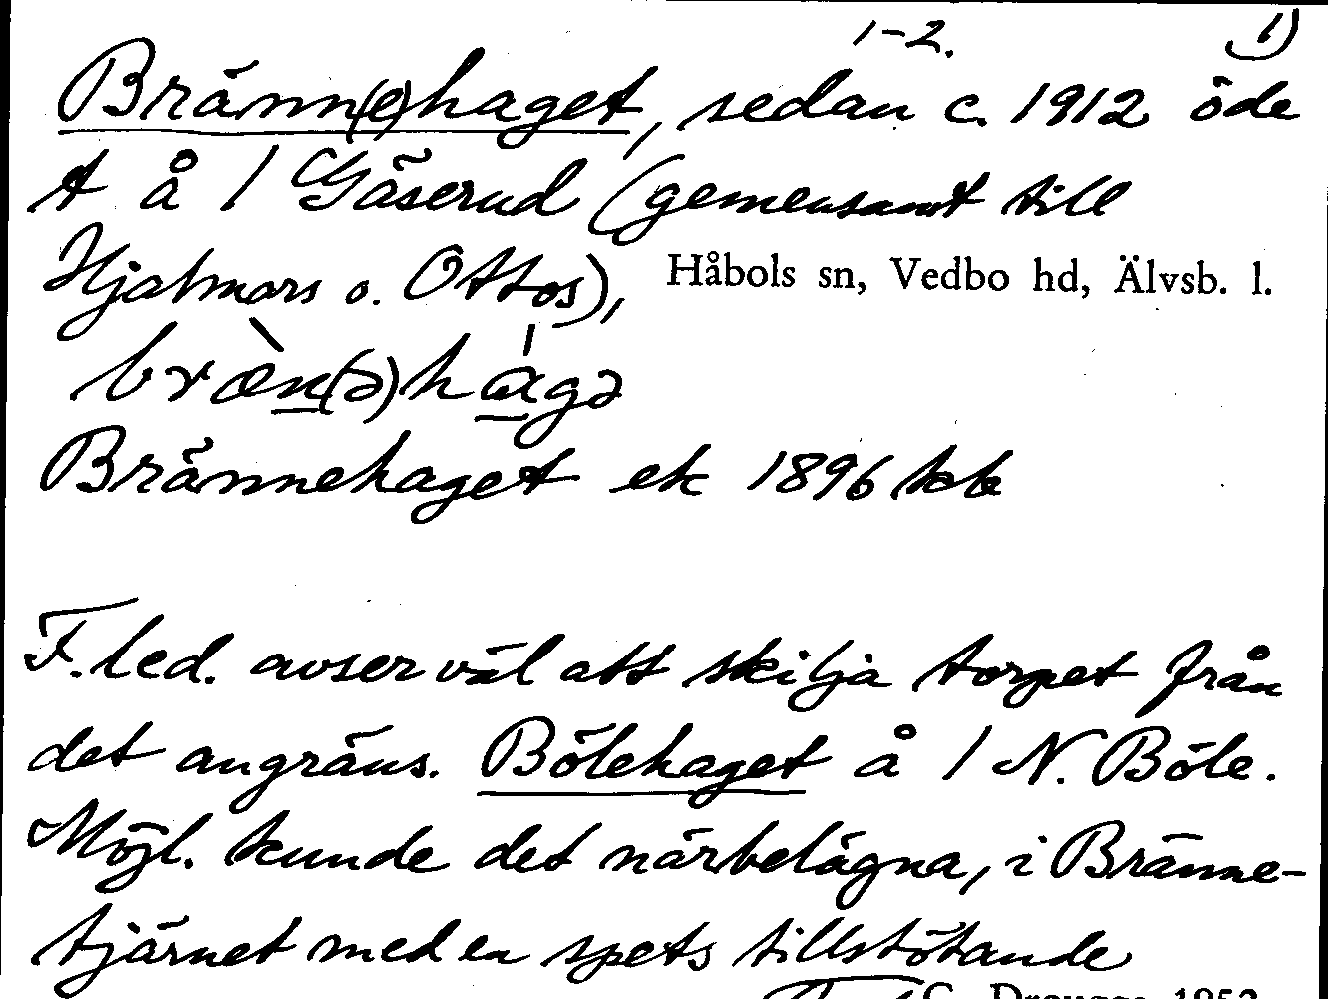 1-2. 1)
Bränn(e)haget, sedan c. 1912 öde
t å 1 Gäserud (gemensamt till
Hjalmars o. Ottos), Håbols sn, Vedbo hd, Älvsb. l.
bræ̀n(ə)hágə
Brännehaget ek 1896 kb
F. led. avser väl att skilja torpet från
det angräns. Bölehaget å 1 N. Böle.
Möjl. kunde det närbelägna, i Bränne-
tjärnet med en spets tillstötande